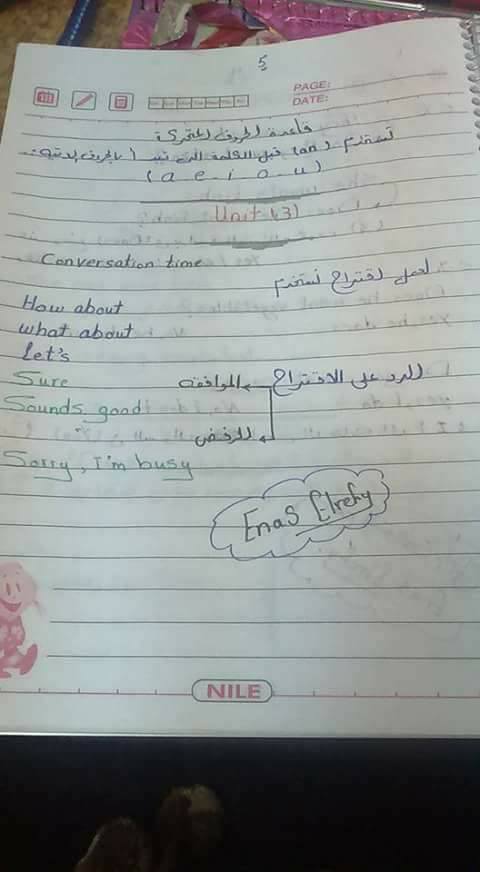 5
PAGE:
DATE:
قاعدة الحروف المتحركة
تستخدم (an) قبل الكلمة التى تبدأ بالحروف الاتية:
(a e - i - o - u)
Unit (3)
Conversation time
لعمل اقتراح نستخدم
How about
what about
Let's
للرد على الاقتراح
الموافقة
Sure
Sounds good
للرفض
Sorry, I'm busy
Enas Elrefy
NILE